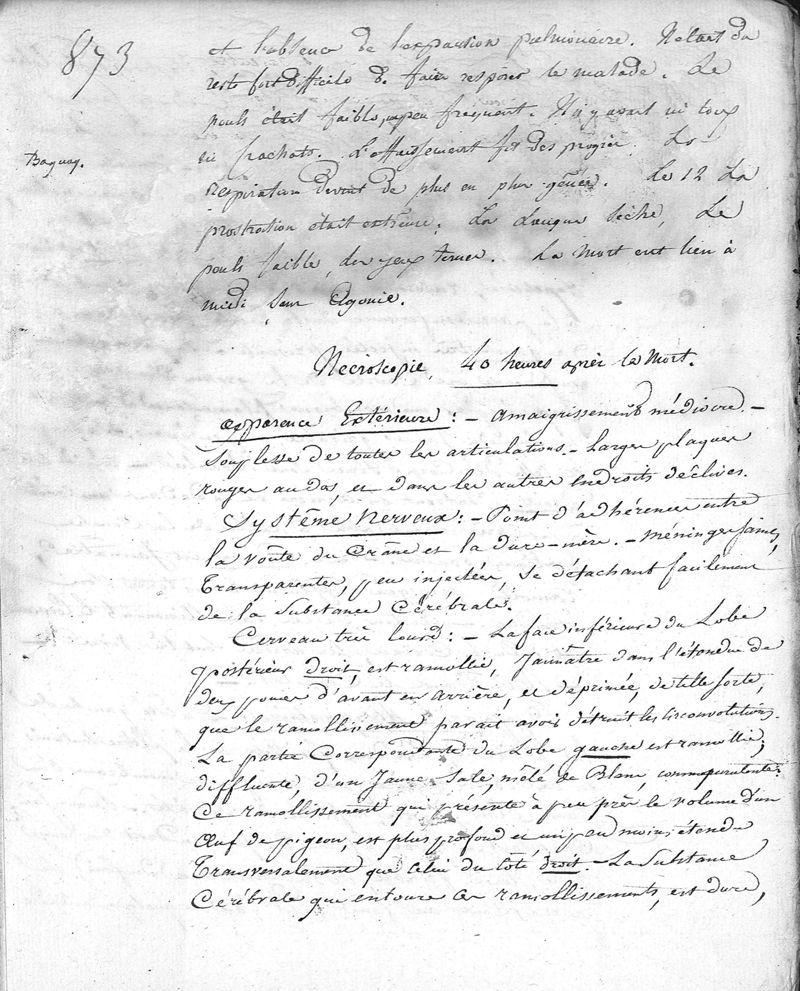 873
et l'absence de l'expansion pulmonaire. Il était du
reste fort difficile de faire respirer le malade. Le
pouls était faible, un peu fréquent. Il n'y avait ni toux
ni crachats. L'affaissement fit des progrès. La
Baquay.
respiration devint de plus en plus gênée. Le 12 La
prostration était extrême; La Langue sèche, Le
pouls faible, les yeux ternes. La Mort eut lieu à
midi sans Agonie.
Nécroscopie, 40 heures après la Mort.
apparence Extérieure: - amaigrissement médiocre. -
Souplesse de toutes les articulations. - Larges plaques
rouges au dos, et dans les autres Endroits déclives.
Système Nerveux: - Point d'adhérences entre
la voûte du Crâne et la dure-mère. - Méninges saines,
Transparentes, peu injectées, se détachant facilement
de la Substance Cérébrale.
Cerveau très lourd: - La face inférieure du Lobe
postérieur droit, est ramollie, Jaunâtre dans l'étendue de
deux pouces d'avant en arrière, et déprimée, de telle sorte,
que le ramollissement parait avoir détruit les circonvolutions.
La partie Correspondante du Lobe gauche est ramollie,
diffluente, d'un Jaune Sale, mêlé de Blanc, comme purulente.
Ce ramollissement qui présente à peu près le volume d'un
Œuf de pigeon, est plus profond et un peu moins étendu
Transversalement que celui du côté droit. - La Substance
Cérébrale qui entoure ces ramollissements, est dure,